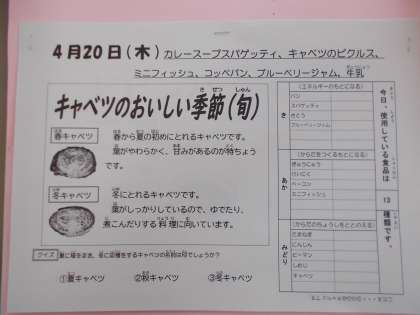 4月20日(木) カレースープスパゲッティ、キャベツのピクルス、
ミニフィッシュ、コッペパン、ブルーベリージャム、牛乳
キャベツのおいしい季節(旬)
き せつ しゅん
春キャベツ
春から夏の初めにとれるキャベツです。
葉がやわらかく、甘みがあるのが特ちょう
です。
冬キャベツ
冬にとれるキャベツです。
葉がしっかりしているので、ゆでたり、
煮こんだりする料理に向いています。
クイズ
夏に種をまき、冬に収穫をするキャベツの名前は何でしょうか?
①夏キャベツ ②秋キャベツ ③冬キャベツ
今日、使用している食品は 13 種類です。
き
(エネルギーのもとになる)
パン
スパゲッティ
さとう
ブルーベリージャム
あか
(からだをつくるもとになる)
ぎゅうにゅう
ベーコン
ミニフィッシュ
みどり
(からだのちょうしをととのえる)
たまねぎ
にんじん
ピーマン
しめじ
キャベツ